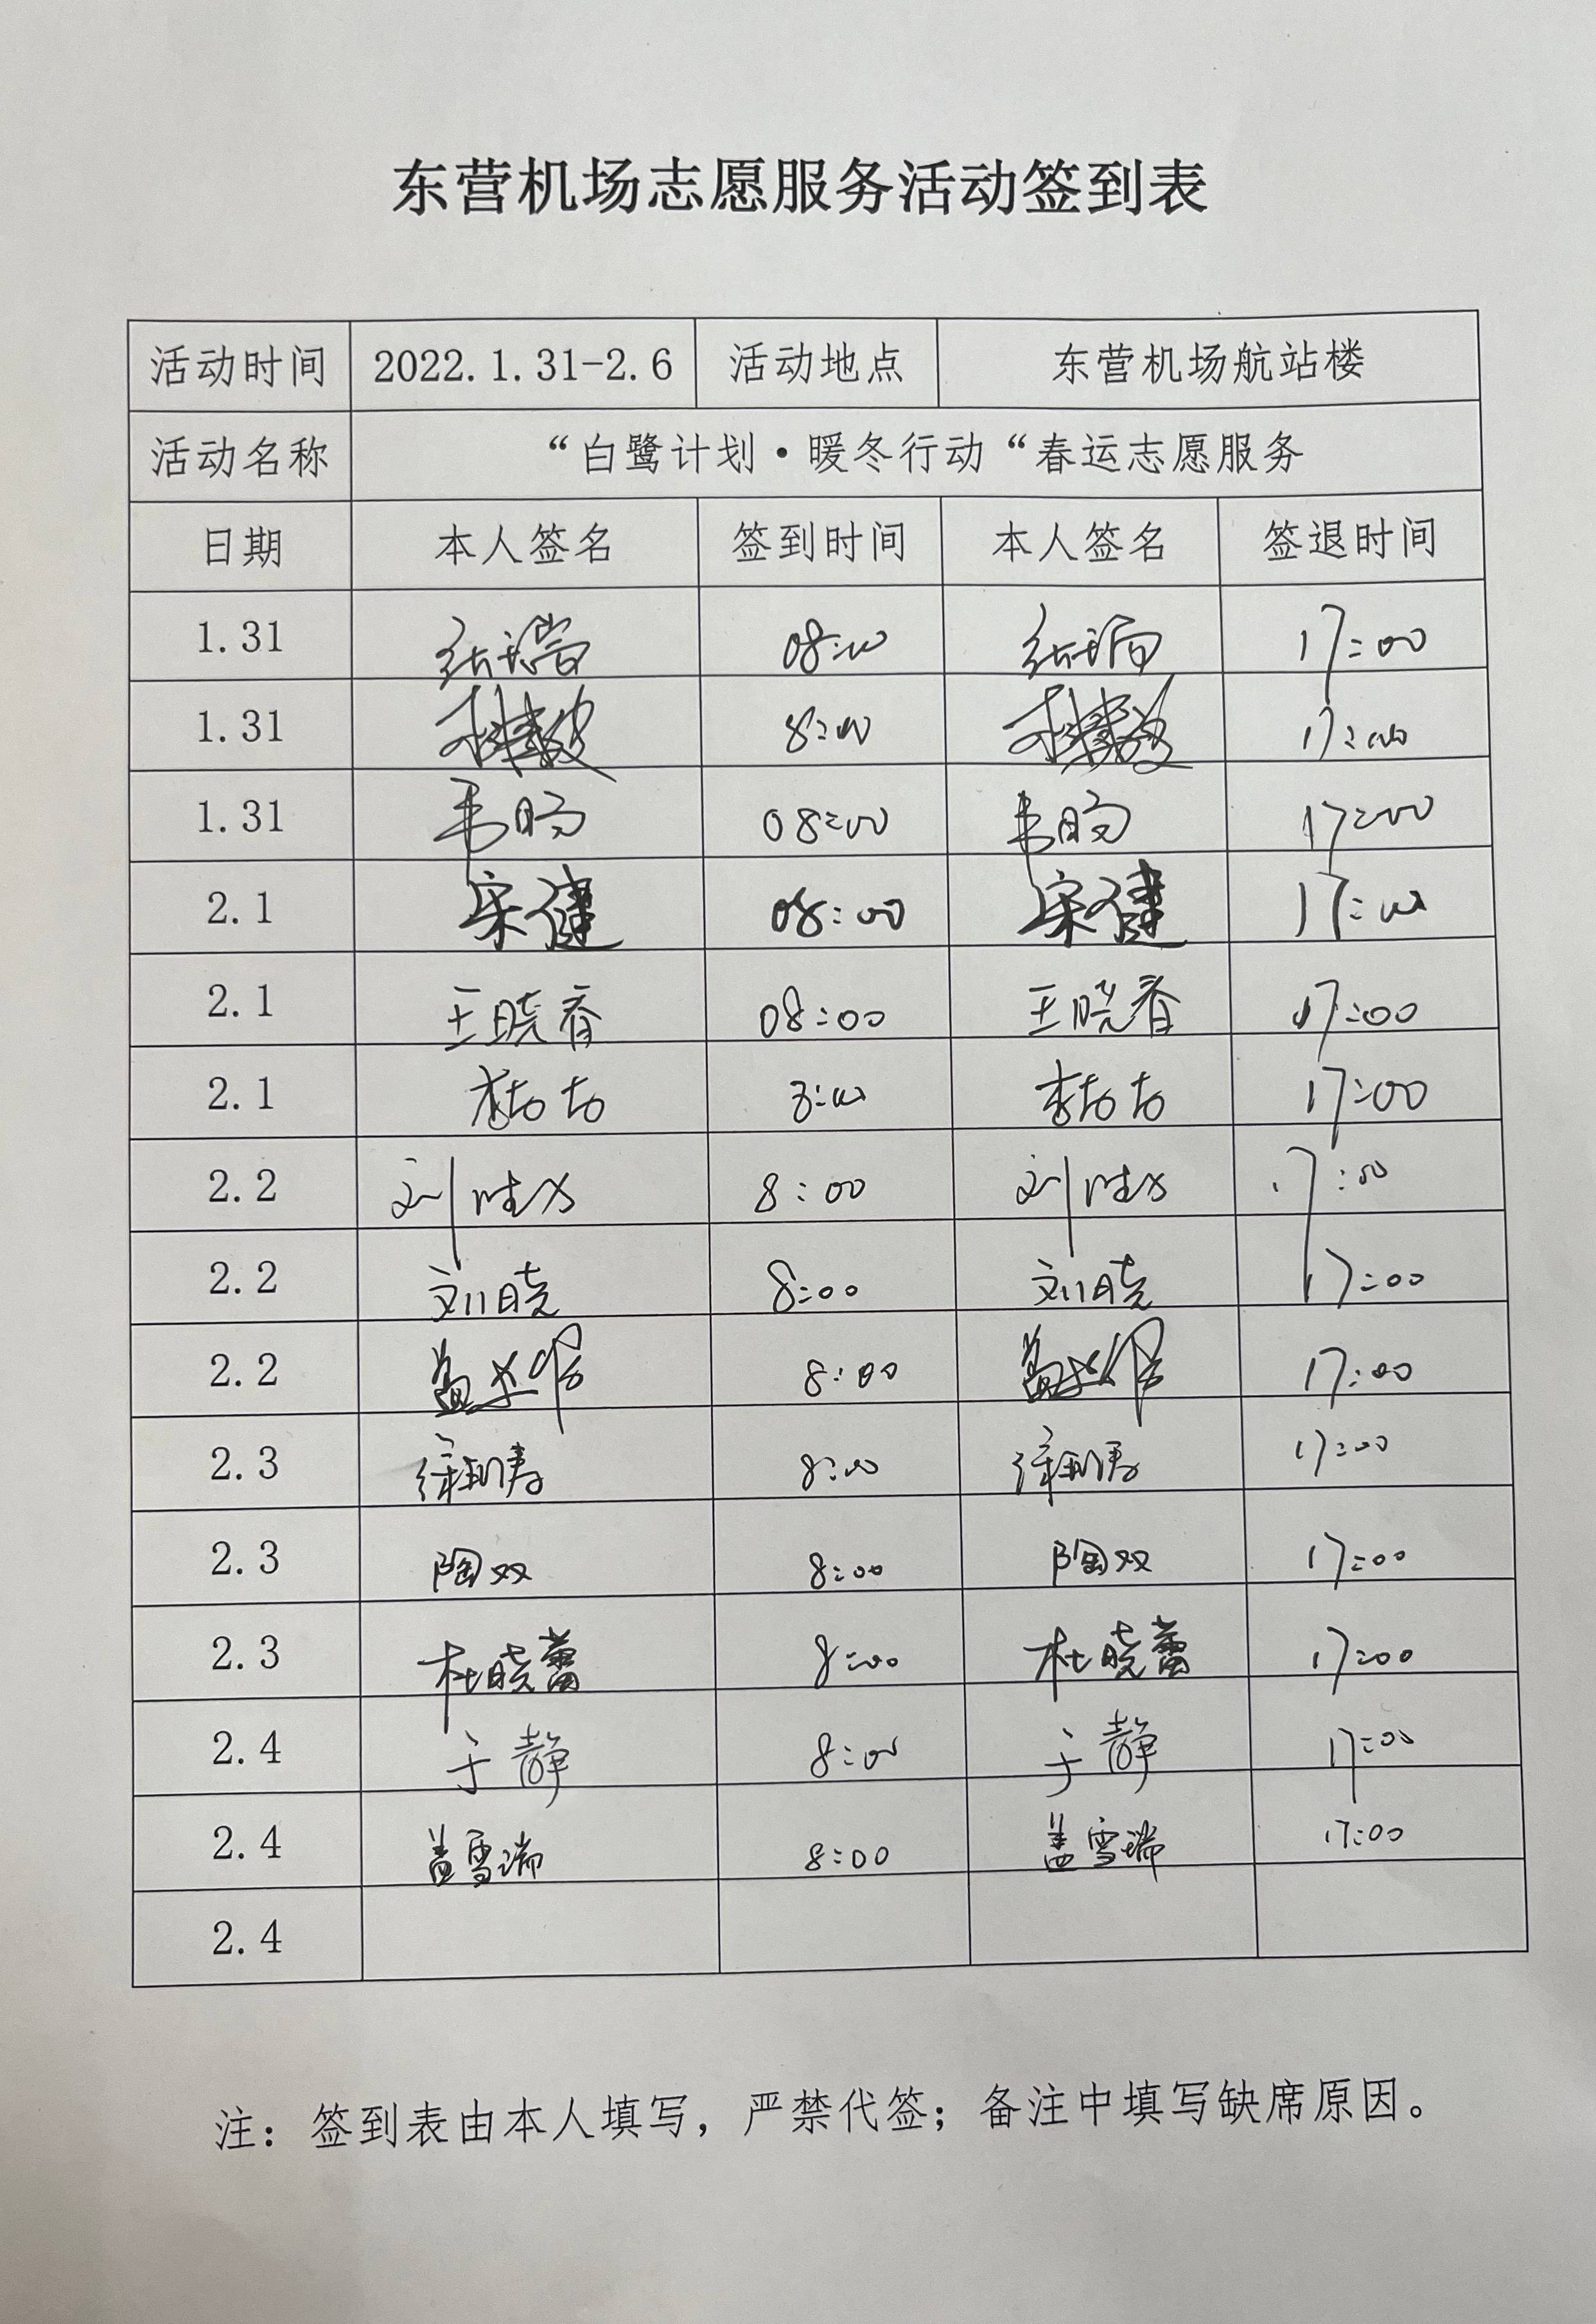 东营机场志愿服务活动签到表
活动时间 2022.1.31-2.6 活动地点 东营机场航站楼
活动名称 “白鹭计划·暖冬行动“春运志愿服务
日期 本人签名 签到时间 本人签名 签退时间
1.31 08:00 17:00
1.31 8:00 17:00
1.31 韦旸 08:00 韦旸 17:00
2.1 宋健 08:00 宋健 17:00
2.1 王晓春 08:00 王晓春 17:00
2.1 8:00 17:00
2.2 刘 8:00 刘 17:00
2.2 刘晓 8:00 刘晓 17:00
2.2 8:00 17:00
2.3 8:00 17:00
2.3 陶双 8:00 陶双 17:00
2.3 杜晓蕾 8:00 杜晓蕾 17:00
2.4 于静 8:00 于静 17:00
2.4 盖雪瑞 8:00 盖雪瑞 17:00
2.4
注：签到表由本人填写，严禁代签；备注中填写缺席原因。